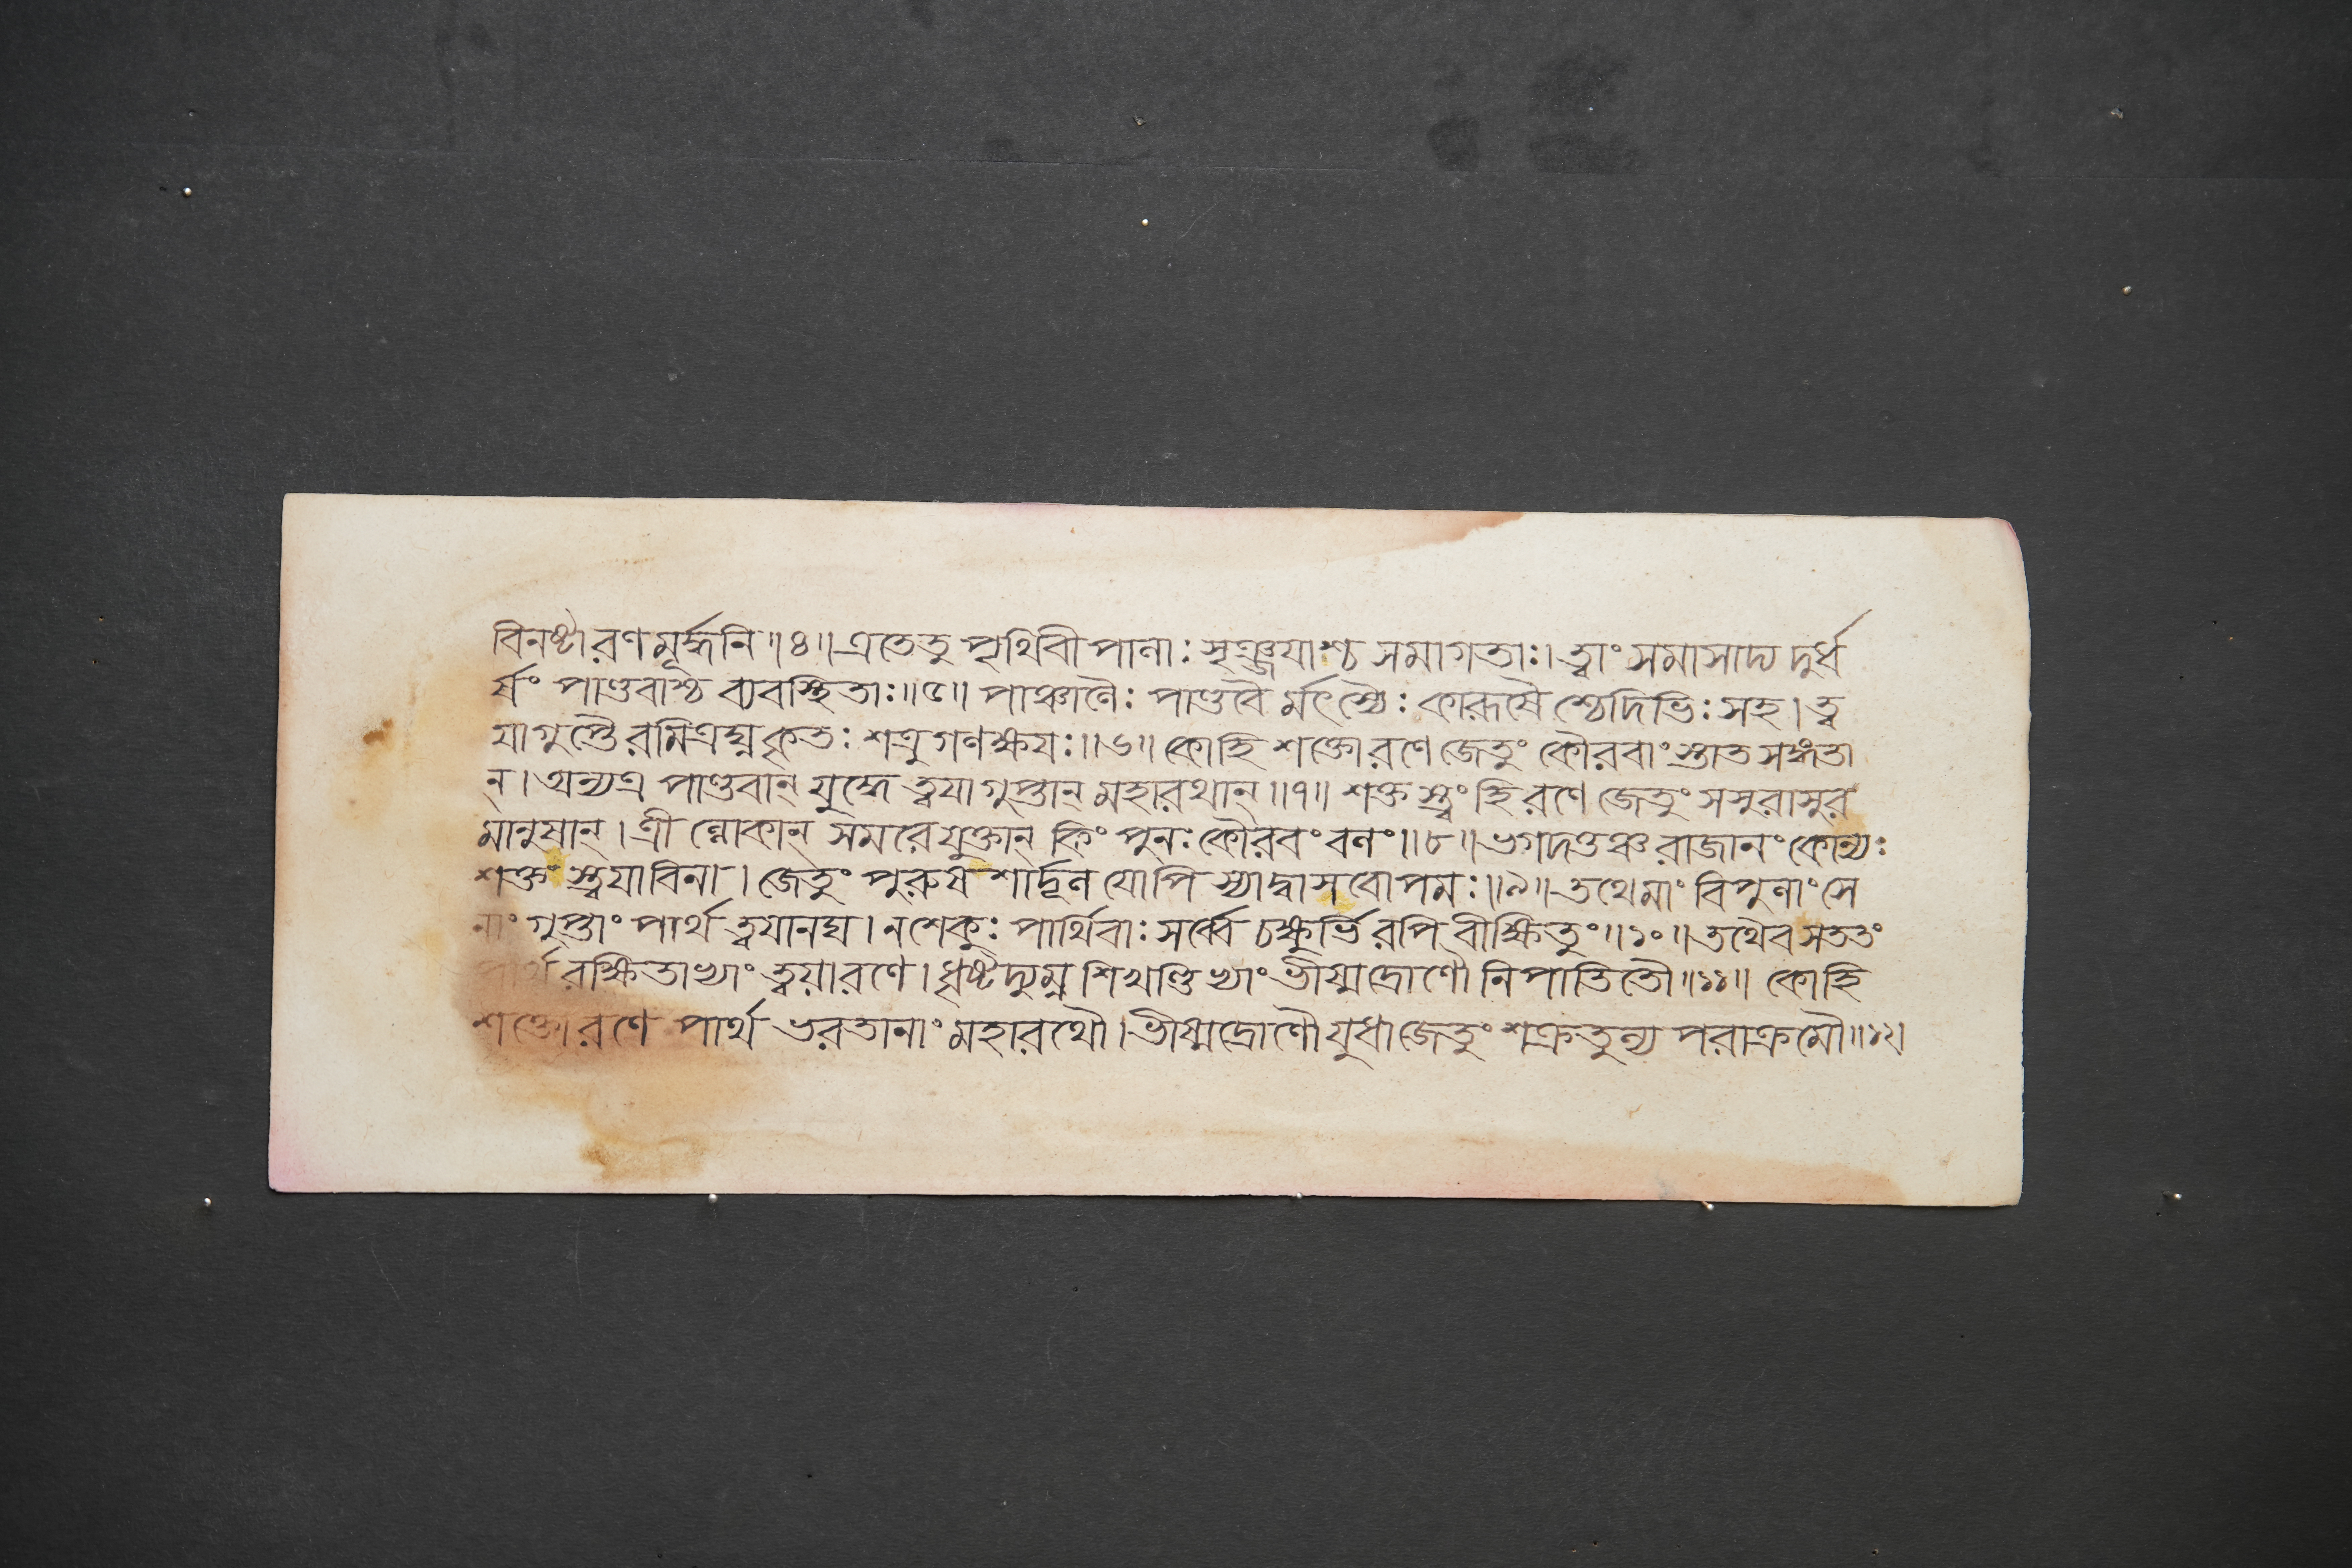 বিনষ্টারণমূর্দ্ধনি॥৪॥এতেতু পৃথিবীপালাঃ সৃঞ্জয়াশ্চ সমাগতাঃ। ত্বাং সমাসাদ্য দুর্ধ
র্ষং পাণ্ডবাশ্চ ব্যবস্থিতাঃ॥৫॥ পাঞ্চালৈঃ পাণ্ডবৈর্মৎস্যৈঃ কারূষৈশ্চেদিভিঃ সহ। ত্ব
য়াগুপ্তৈরমিত্রঘ্নকৃতঃ শত্রুগণক্ষয়ঃ॥৬॥ কোহি শক্তোরণে জেতুং কৌরবাংস্তাত সঙ্গতা
ন্। অন্যত্র পাণ্ডবান্ যুদ্ধে ত্বয়াগুপ্তান্ মহারথান্॥৭॥ শক্তস্ত্বং হি রণে জেতুং সসুরাসুর
মানুষান্। ত্রীঁল্লোকান্ সমরে যুক্তান্ কিং পুনঃ কৌরবং বলং॥৮॥ ভগদত্তঞ্চ রাজানং কোন্যঃ
শক্তস্ত্বয়াবিনা। জেতুং পুরুষশার্দ্দূল যোপি স্যাদ্বাসবোপমঃ॥৯॥ তথেমাং বিপুলাং সে
নাং গুপ্তাং পার্থ ত্বয়ানঘ। ন শেকুঃ পার্থিবাঃ সর্ব্বে চক্ষুর্ভিরপি বীক্ষিতুং॥১০॥ তথৈব সততং
পার্থ রক্ষিতাভ্যাং ত্বয়ারণে। ধৃষ্টদ্যুম্ন শিখণ্ডিভ্যাং ভীষ্মদ্রোণৌ নিপাতিতৌ॥১১॥ কোহি
শক্তোরণে পার্থ ভরতানাং মহারথৌ। ভীষ্মদ্রোণৌ যুধা জেতুং শক্রতুল্য পরাক্রমৌ॥১২।